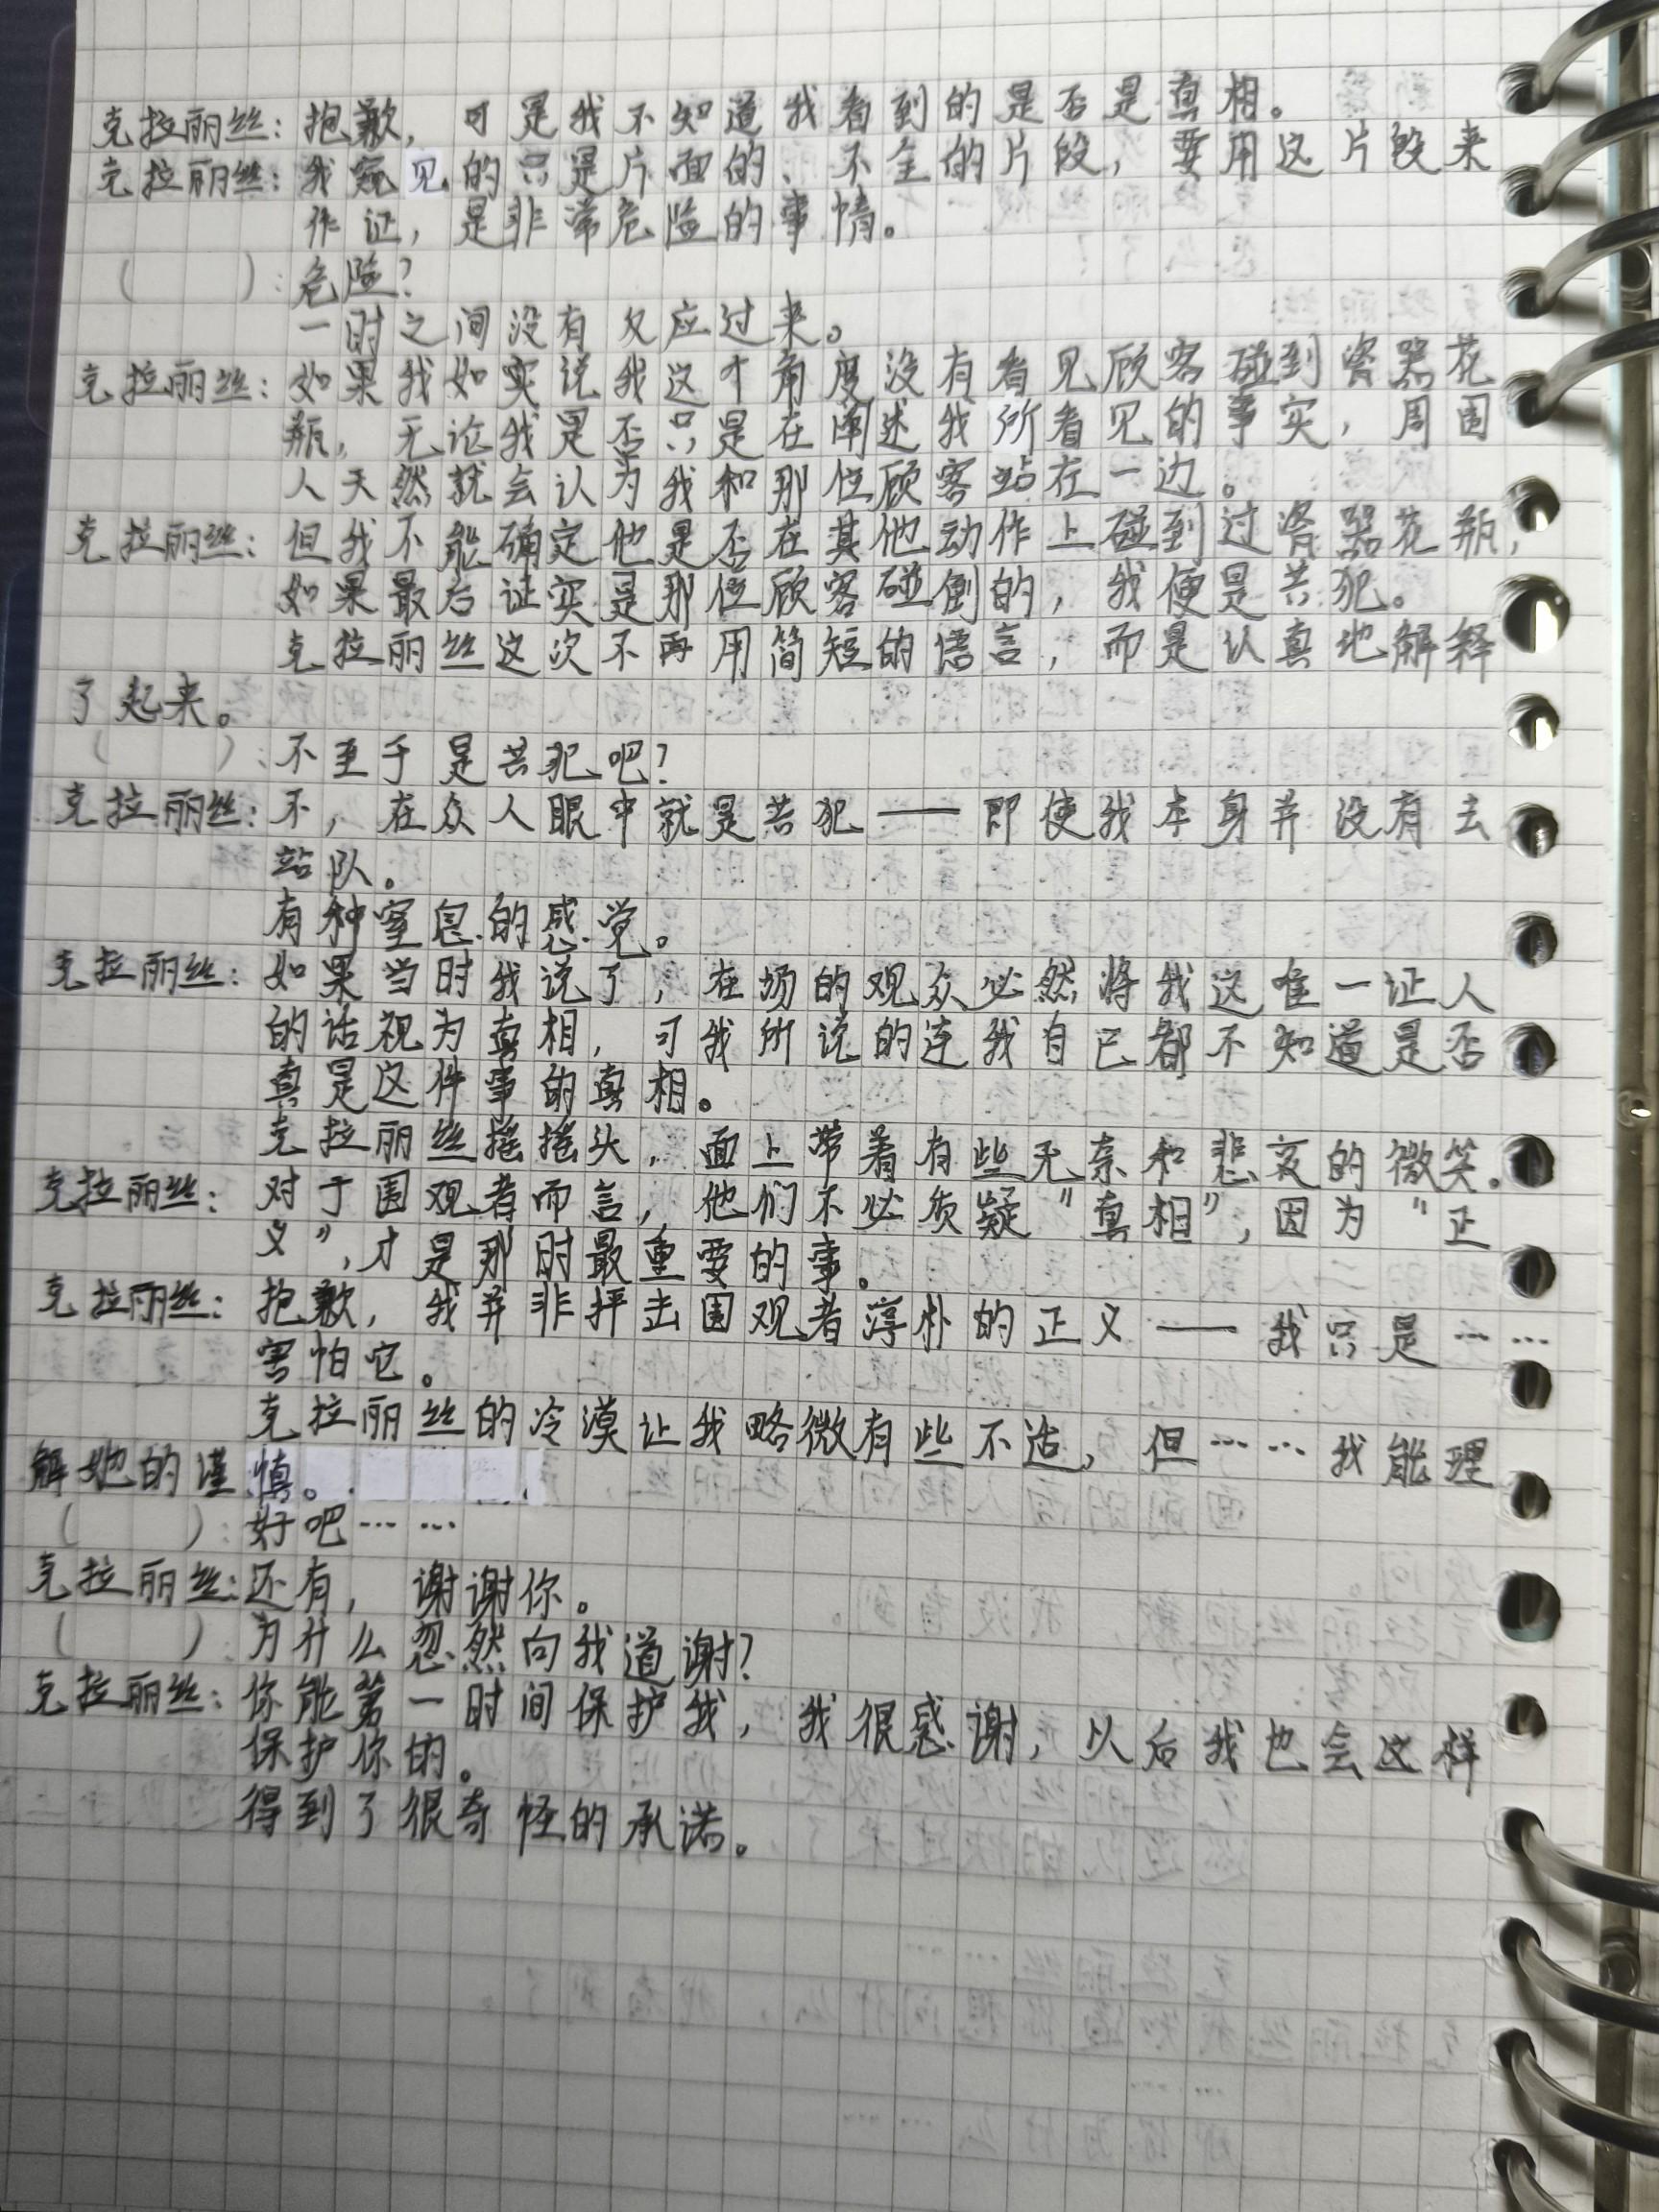 克拉丽丝：抱歉，可是我不知道我看到的是否是真相。
克拉丽丝：我窥见的只是片面的、不全的片段，要用这片段来
作证，是非常危险的事情。
（　　）：危险？
一时之间没有反应过来。
克拉丽丝：如果我如实说我这个角度没有看见顾客碰到瓷器花
瓶，无论我是否只是在阐述我所看见的事实，周围
人天然就会认为我和那位顾客站在一边。
克拉丽丝：但我不能确定他是否在其他动作上碰到过瓷器花瓶，
如果最后证实是那位顾客碰倒的，我便是共犯。
克拉丽丝这次不再用简短的语言，而是认真地解释
了起来。
（　　）：不至于是共犯吧？
克拉丽丝：不，在众人眼中就是共犯——即使我本身并没有去
站队。
有种窒息的感觉。
克拉丽丝：如果当时我说了，在场的观众必然将我这唯一证人
的话视为真相，可我所说的连我自己都不知道是否
真是这件事的真相。
克拉丽丝摇摇头，面上带着有些无奈和悲哀的微笑。
克拉丽丝：对于围观者而言，他们不必质疑“真相”，因为“正
义”，才是那时最重要的事。
克拉丽丝：抱歉，我并非抨击围观者淳朴的正义——我只是……
害怕它。
克拉丽丝的冷漠让我略微有些不适，但……我能理
解她的谨慎。
（　　）：好吧……
克拉丽丝：还有，谢谢你。
（　　）：为什么忽然向我道谢？
克拉丽丝：你能第一时间保护我，我很感谢，以后我也会这样
保护你的。
得到了很奇怪的承诺。